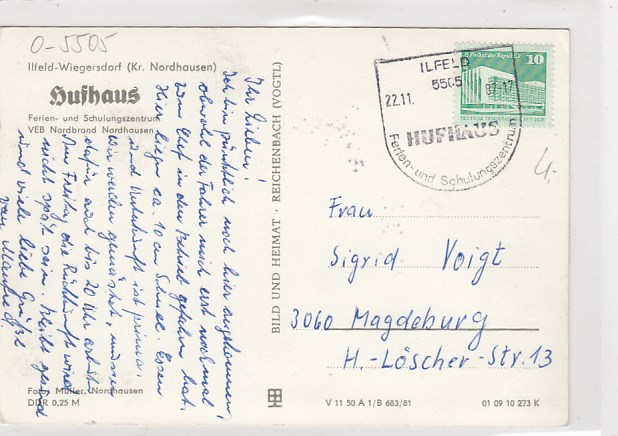 0-5505
Ilfeld-Wiegersdorf (Kr. Nordhausen)
Hufhaus
Ferien- und Schulungszentrum
VEB Nordbrand Nordhausen
Ihr Lieben!
Ich bin pünktlich noch hier angekommen,
obwohl der Fahrer mich erst nochmal
zum Chef in den Betrieb gefahren hat.
Hier liegen ca. 10 cm Schnee. Essen
und Unterkunft ist prima.
Wir werden gemästet, müssen
dafür auch bis 20 Uhr arbeiten
Am Freitag, die Rückkunft wird
nicht spät sein. Bleibt gesund
und viele liebe Grüße
von Manfred
Foto: Müller, Nordhausen
DDR 0,25 M
BILD UND HEIMAT · REICHENBACH (VOGTL)
V 11 50 A 1/B 683/81
01 09 10 273 K
ILFELD
5505
22.11. 87-17
HUFHAUS
Ferien- und Schulungszentrum
Palast der Republik
10
4,-
Frau
Sigrid Voigt
3060 Magdeburg
H.-Löscher-Str. 13